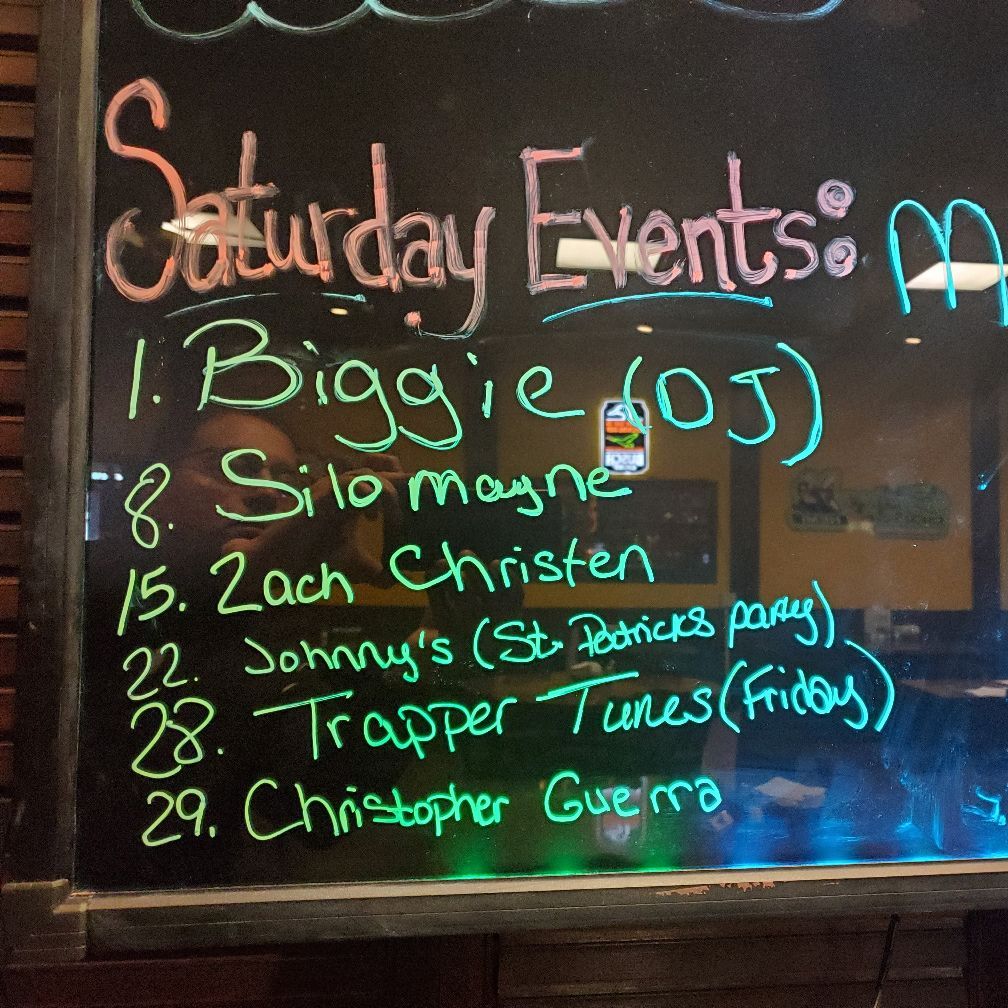 Saturday Events:
M
1. Biggie (DJ)
8. Silo mayne
15. Zach Christen
22. Johnny's (St. Patricks party)
28. Trapper Tunes (Friday)
29. Christopher Guerra